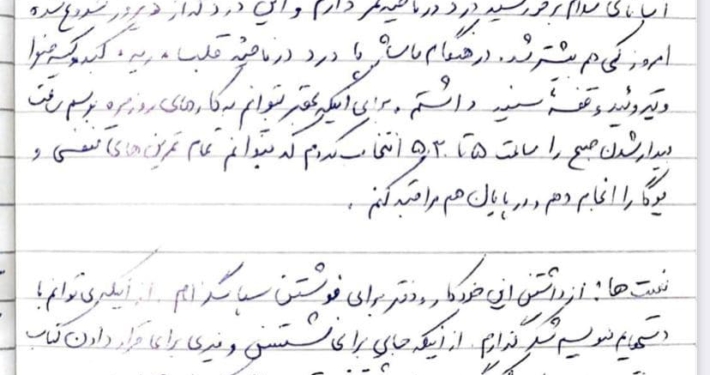 آسانای سلام بر خورشید درد در ناحیه کمر دارم و این درد که از دیروز شروع شده
امروز کمی هم بیشتر شد. در هنگام ماساژ با درد در ناحیه قلب، ریه، کبد و کیسه صفرا
و تیروئید و قفسه سینه داشتم. برای اینکه بهتر بتوانم به کارهای روزمره برسم ساعت
بیدار شدن صبح را ساعت ۵ تا ۵:۲۰ انتخاب کردم که بتوانم تمام تمرین‌های تنفسی و
یوگا را انجام دهم و در پایان هم مراقبه کنم.
نعمت ها: از داشتن این خودکار و دفتر برای نوشتن سپاسگزارم. از اینکه می توانم با
دستهایم بنویسم شکرگذارم. از اینکه جایی برای نشستن و میزی برای قرار دادن کتاب